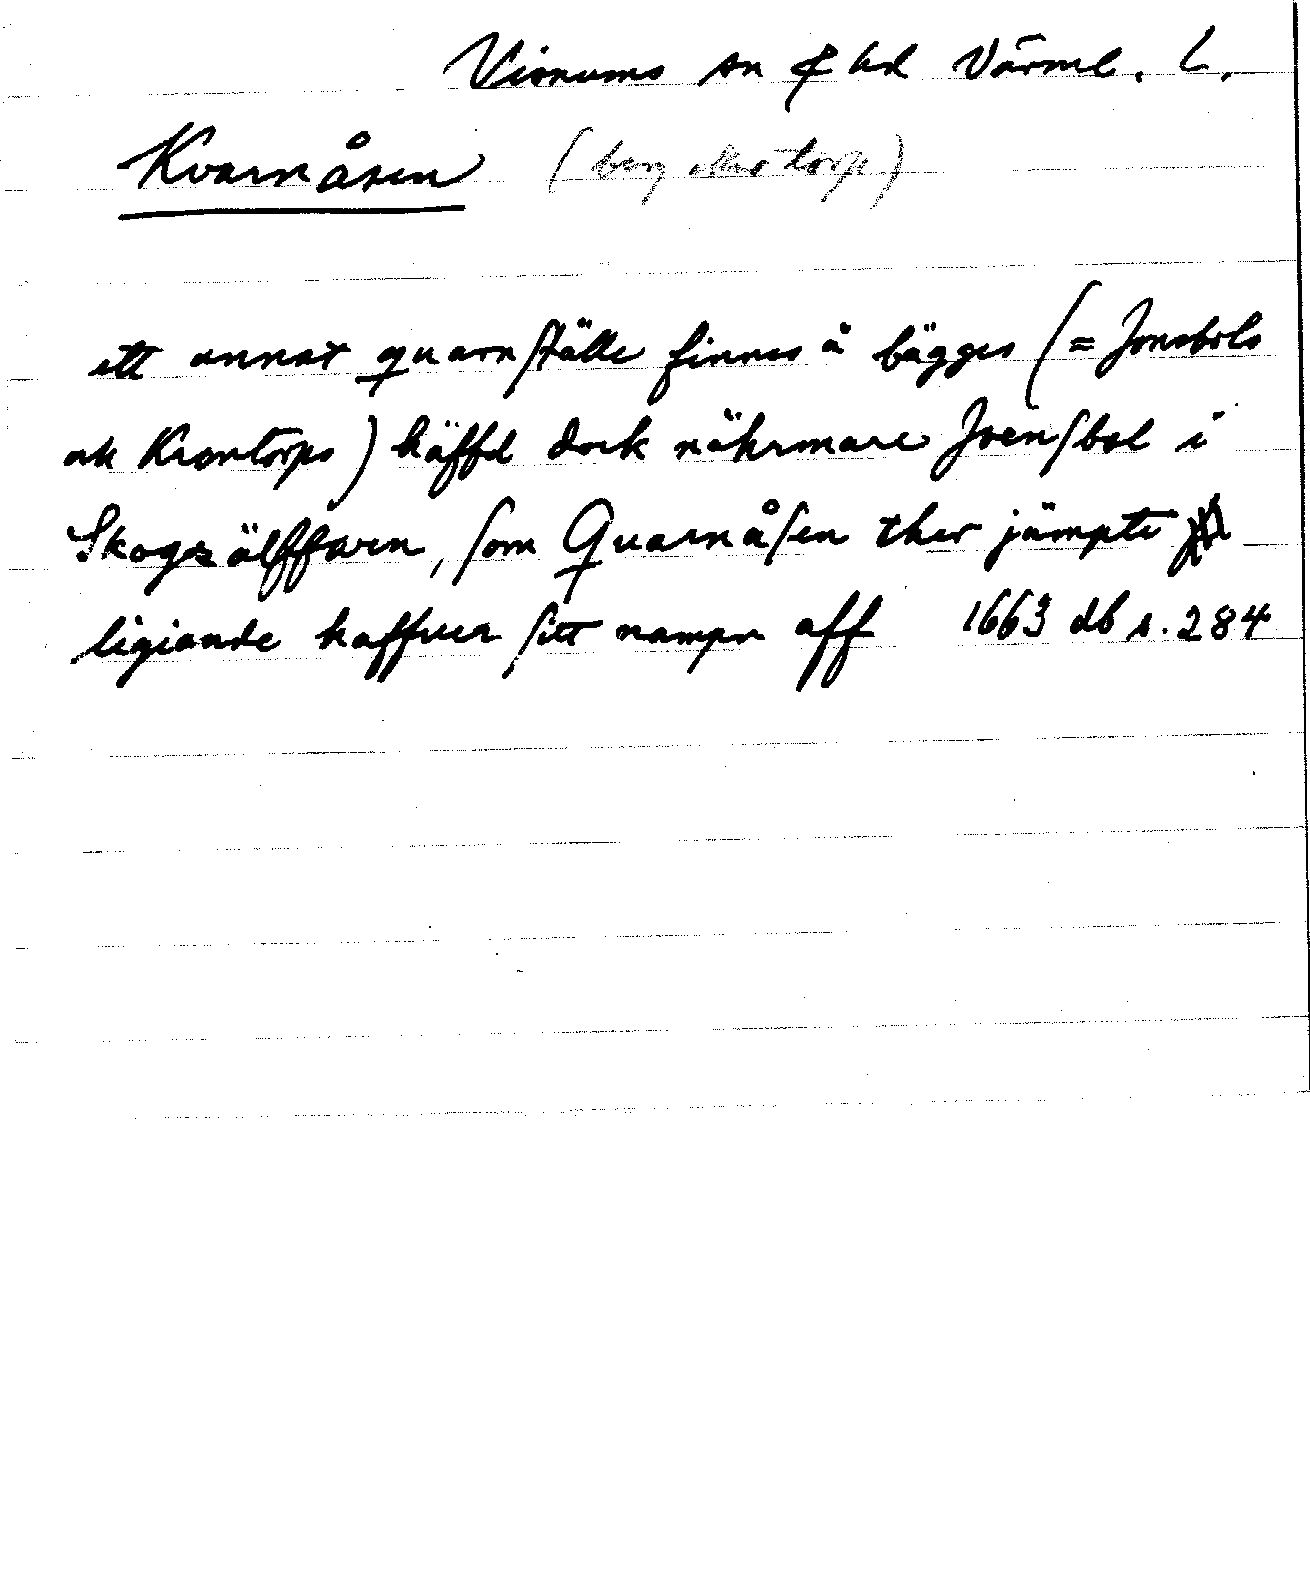 Visnums sn & hd Värml. L.
Kvarnåsen (berg eller torp)
ett annat quarnställe finnes å bägges (= Jonsbols
ok Krontorps) häffd dock nährmare Joensbol i
Skogzälffwen, som Quarnåsen ther jämpte
ligiande haffuer sitt nampn aff 1663 db s. 284